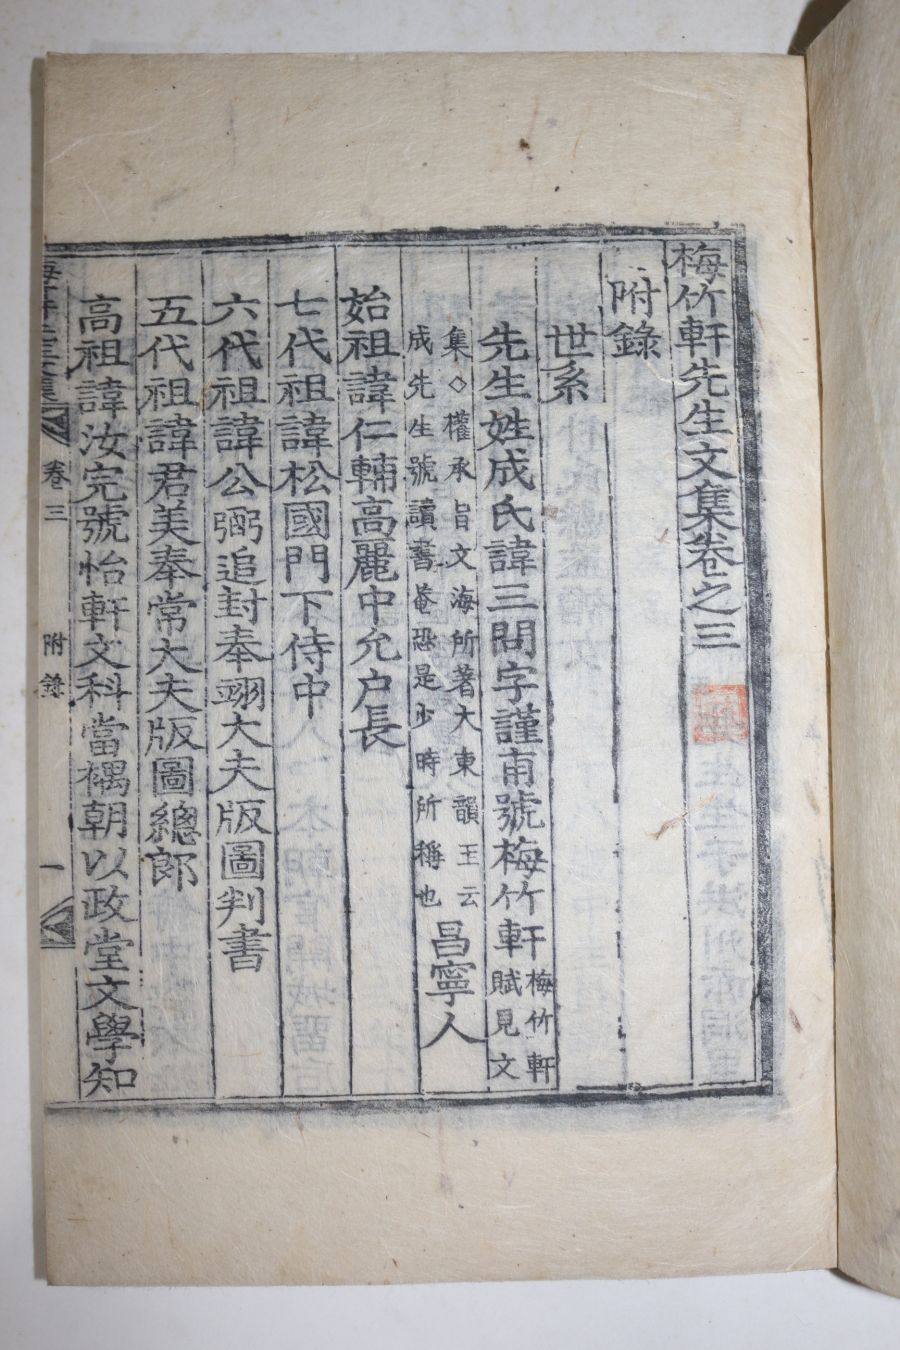 梅竹軒先生文集卷之三
附錄
世系
先生姓成氏諱三問字謹甫號梅竹軒梅竹軒賦見文
集◇權承旨文海所著大東韻玉云成先生號讀書菴恐是少時所稱也昌寧人
始祖諱仁輔高麗中允户長
七代祖諱松國門下侍中
六代祖諱公弼追封奉翊大夫版圖判書
五代祖諱君美奉常大夫版圖總郎
高祖諱汝完號怡軒文科當禑朝以政堂文學知
卷三
附錄
一